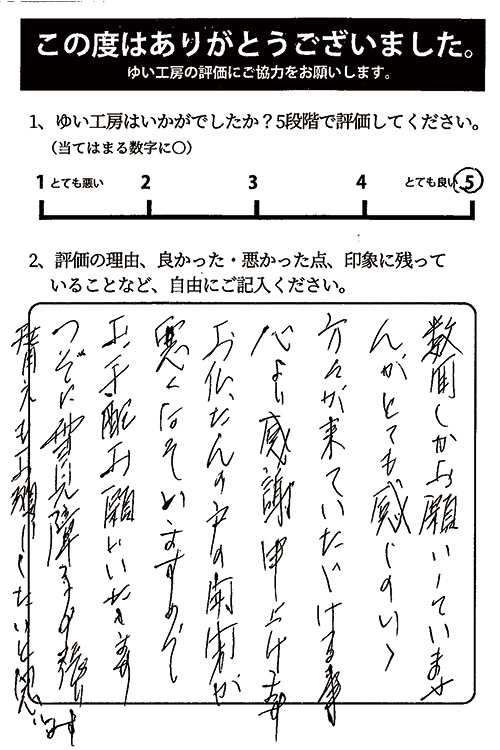 この度はありがとうございました。
ゆい工房の評価にご協力をお願いします。
1、ゆい工房はいかがでしたか？5段階で評価してください。
（当てはまる数字に○）
1 とても悪い 2 3 4 とても良い 5
2、評価の理由、良かった・悪かった点、印象に残って
いることなど、自由にご記入ください。
数回しかお願いしていませ
んがとても感じのいい
方々が来ていただける事
心より感謝申し上げます
お仏だんの戸の開閉が
悪くなっていますので
お手配お願いいたします
つぎに雪見障子の張り
替えもお願いしたいと思います